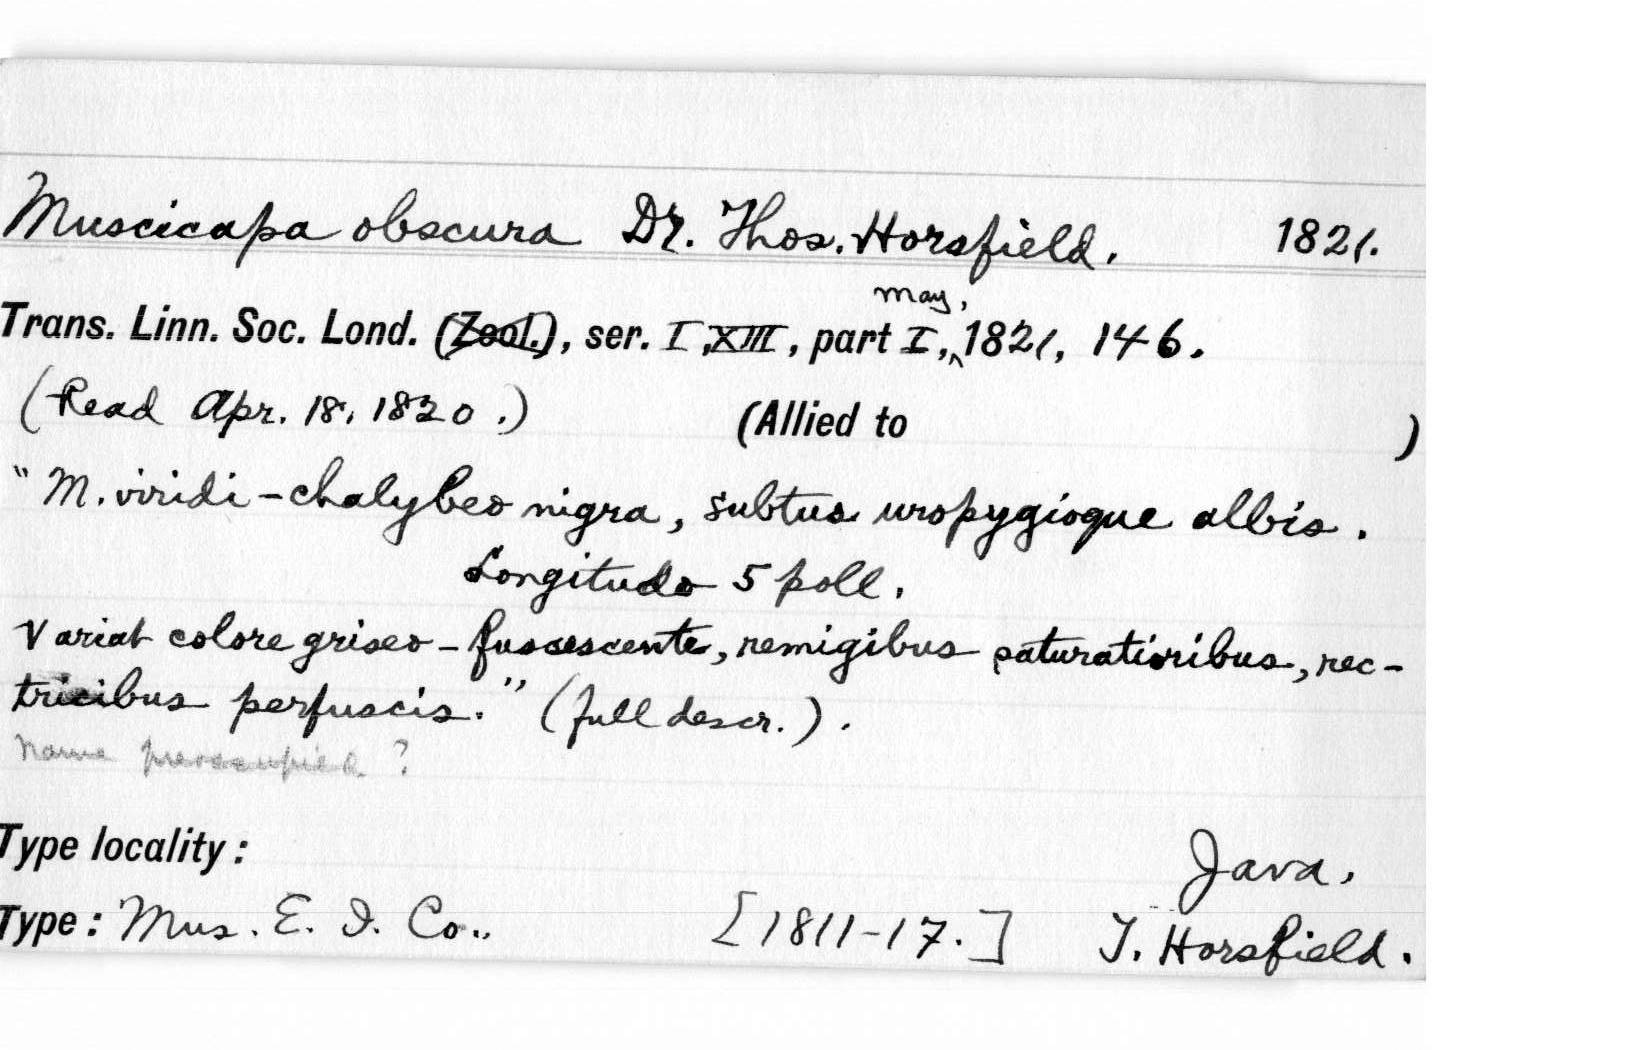 Muscicapa obscura Dr. Thos. Horsfield. 1821.
Trans. Linn. Soc. Lond. (Zool.), ser. I, XIII, part I, May, 1821, 146.
(Read Apr. 18, 1820.) (Allied to )
"M. viridi-chalybeo nigra, subtus uropygioque albis.
Longitudo 5 poll.
Variat colore griseo-fuscescente, remigibus saturatioribus, rec-
tricibus perfuscis." (full descr.).
Name preoccupied?
Type locality: Java.
Type: Mus. E. I. Co.. [1811-17.] T. Horsfield.